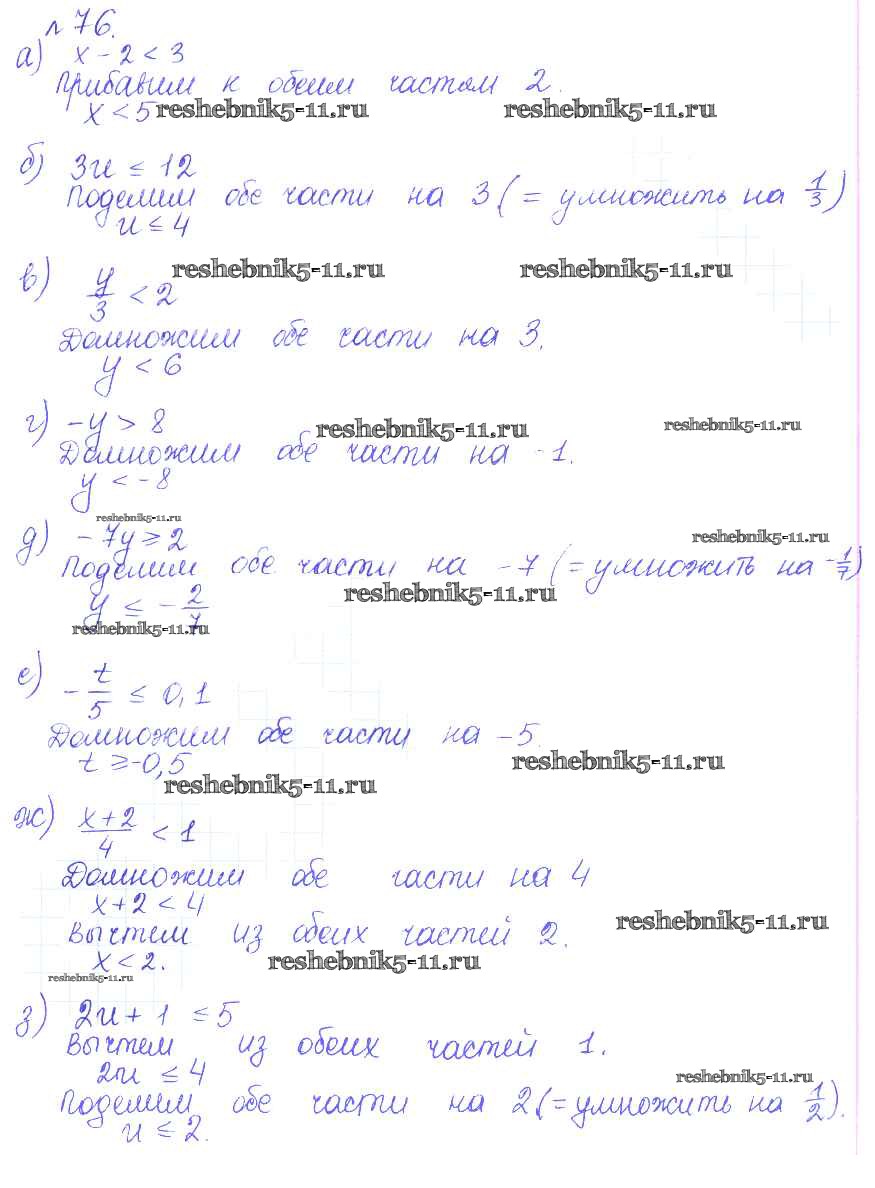 № 76.
а) x - 2 < 3
Прибавим к обеим частям 2.
x < 5 reshebnik5-11.ru reshebnik5-11.ru
б) 3u ≤ 12
Поделим обе части на 3 (= умножить на 1/3)
u ≤ 4
reshebnik5-11.ru reshebnik5-11.ru
в) y/3 < 2
Домножим обе части на 3.
y < 6
г) -y > 8 reshebnik5-11.ru reshebnik5-11.ru
Домножим обе части на -1.
y < -8
reshebnik5-11.ru
д) -7y ≥ 2 reshebnik5-11.ru
Поделим обе части на -7 (= умножить на -1/7)
y ≤ -2/7 reshebnik5-11.ru
reshebnik5-11.ru
е) -t/5 ≤ 0,1
Домножим обе части на -5.
t ≥ -0,5 reshebnik5-11.ru
reshebnik5-11.ru
ж) x+2/4 < 1
Домножим обе части на 4
x + 2 < 4
reshebnik5-11.ru
Вычтем из обеих частей 2.
x < 2. reshebnik5-11.ru
reshebnik5-11.ru
з) 2u + 1 ≤ 5
Вычтем из обеих частей 1.
2u ≤ 4 reshebnik5-11.ru
Поделим обе части на 2 (= умножить на 1/2).
u ≤ 2.